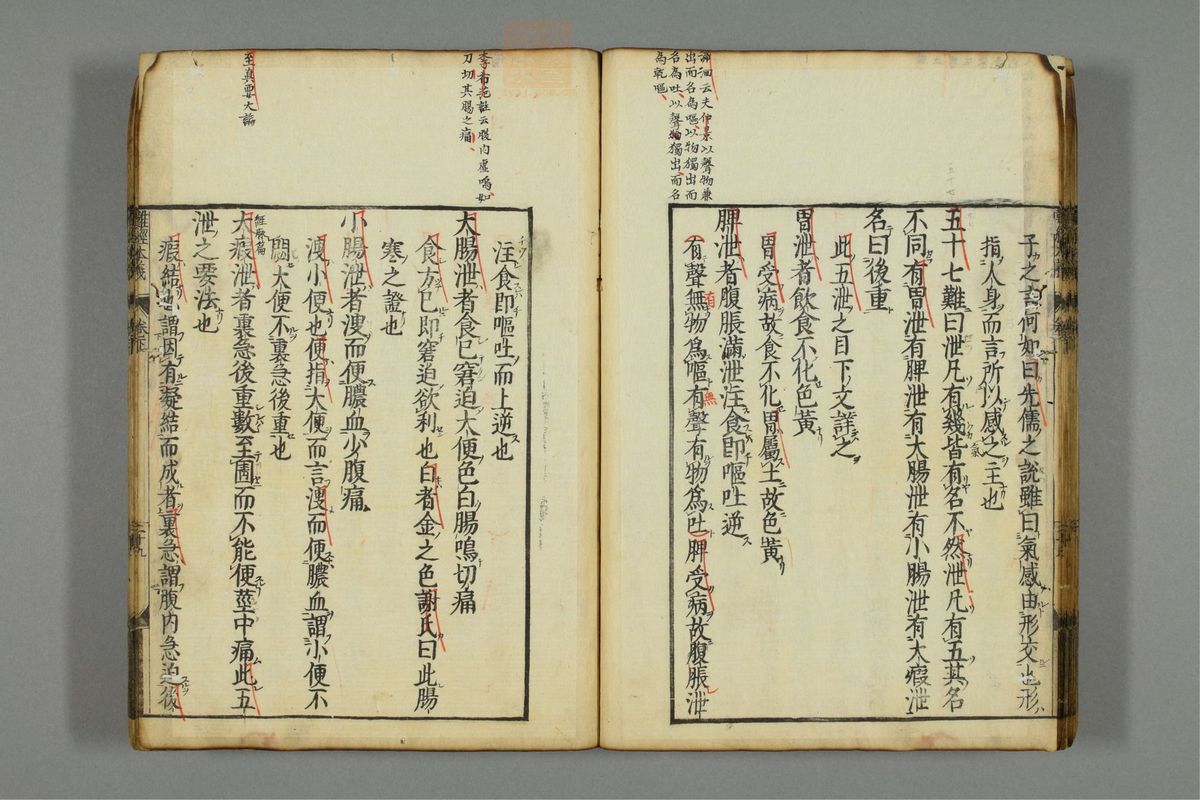 子之言何如曰先儒之説雖曰氣感由形交也形
指人身而言所以感之主也
五十七難曰泄凡有幾皆有名不然泄凡有五其名
不同有胃泄有脾泄有大腸泄有小腸泄有大瘕泄
名曰後重
此五泄之目下文詳之
胃泄者飲食不化色黄
胃受病故食不化胃屬土故色黄
脾泄者腹脹滿泄注食即嘔吐逆
有聲無物為嘔有聲有物為吐脾受病故腹脹泄
云夫仲景以聲物兼
出而名為嘔以物獨出而
名為吐以聲獨出而名
為乾嘔
注食即嘔吐而上逆也
大腸泄者食已窘迫大便色白腸鳴切痛
食方已即窘迫欲利也白者金之色謝氏曰此腸
寒之證也
小腸泄者溲而便膿血少腹痛
溲小便也便指大便而言溲而便膿血謂小便不
閟大便不裏急後重也
經脉篇
大瘕泄者裏急後重數至圊而不能便莖中痛此五
泄之要法也
瘕結也謂因有凝結而成者裏急謂腹内急迫後
李希范註云腹内虚鳴如
刀切其腸之痛
至真要大論
難經本義
卷下